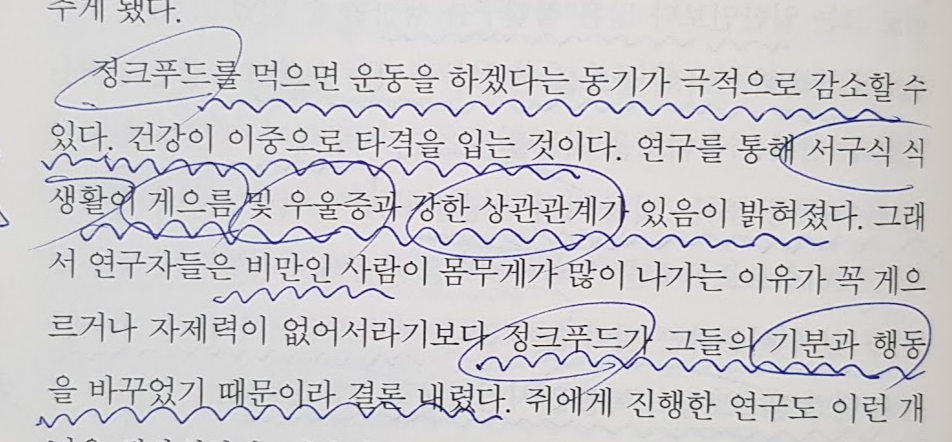 주게 됐다.
정크푸드를 먹으면 운동을 하겠다는 동기가 극적으로 감소할 수
있다. 건강이 이중으로 타격을 입는 것이다. 연구를 통해 서구식 식
생활이 게으름 및 우울증과 강한 상관관계가 있음이 밝혀졌다. 그래
서 연구자들은 비만인 사람이 몸무게가 많이 나가는 이유가 꼭 게으
르거나 자제력이 없어서라기보다 정크푸드가 그들의 기분과 행동
을 바꾸었기 때문이라 결론 내렸다. 쥐에게 진행한 연구도 이런 개